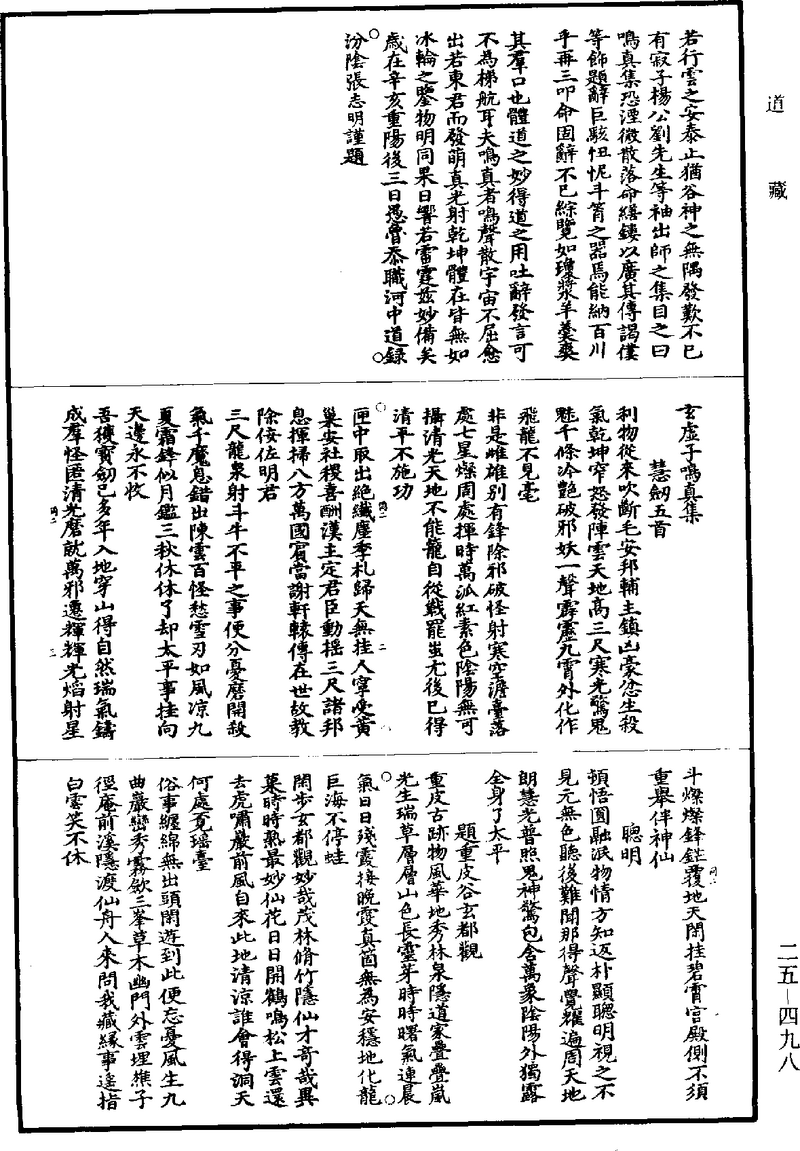 道藏
若行雲之安泰止猶谷神之無隅發歎不已
有寂子楊公劉先生等袖出師之集目之曰
鳴真集恐湮微散落命繕鏤以廣其傳謁僕
等飾題辭巨駭忸怩斗筲之器焉能納百川
乎再三叩命固辭不已綜覽如瓊漿羊羹爽
其羣口也體道之妙得道之用吐辭發言可
不為梯航耳夫鳴真者鳴聲散宇宙不屈愈
出若東君而發萌真光射乾坤體在皆無如
冰輪之鑒物明同杲日響若雷霆茲妙備矣
歲在辛亥重陽後三日愚曾忝職河中道錄
汾陰張志明謹題
玄虛子鳴真集
慧劒五首
利物從來吹斷毛安邦輔主鎮凶豪忿生殺
氣乾坤窄怒發陣雲天地高三尺寒光驚鬼
魅千條冷艷破邪妖一聲霹靂九霄外化作
飛龍不見毫
非是雌雄別有鋒除邪破怪射寒空澹臺落
處七星燦周處揮時萬派紅素色陰陽無可
攝清光天地不能籠自從戰罷蚩尤後已得
清平不施功
匣中取出絕纖塵季札歸天無挂人寧受黃
巢安社稷喜酬漢主定君臣動搖三尺諸邦
息揮掃八方萬國賓當謝軒轅傳在世故教
除佞佐明君
三尺龍泉射斗牛不平之事便分憂磨開殺
氣千魔息錯出陳雲百怪愁雪刃如風凉九
夏霜鋒似月鑑三秋休休了却太平事挂向
天邊永不收
吾獲寶劒已多年入地穿山得自然瑞氣鑄
成羣怪匿清光磨就萬邪遷輝輝光焰射星
斗燦燦鋒鋩覆地天閑挂碧霄宮殿側不須
重舉伴神仙
聰明
頓悟圓融泯物情方知返朴顯聰明視之不
見元無色聽後難聞那得聲覺耀遍周天地
朗慧光普照鬼神驚包含萬象陰陽外獨露
全身了太平
題重皮谷玄都觀
重皮古跡物風華地秀林泉隱道家疊疊嵐
光生瑞草層層山色長靈芽時時曙氣連晨
氣日日殘霞接晚霞真箇無為安穩地化龍
巨海不停蛙
閑步玄都觀妙哉茂林脩竹隱仙才奇哉異
菓時時熟最妙仙花日日開鶴鳴松上雲還
去虎嘯巖前風自來此地清涼誰會得洞天
何處覓瑤臺
俗事纏綿無出頭閑遊到此便忘憂風生九
曲巖巒秀霧歛三峯草木幽門外雲埋樵子
徑庵前溪隱渡仙舟人來問我藏緣事遙指
白雲笑不休
二五—四九八